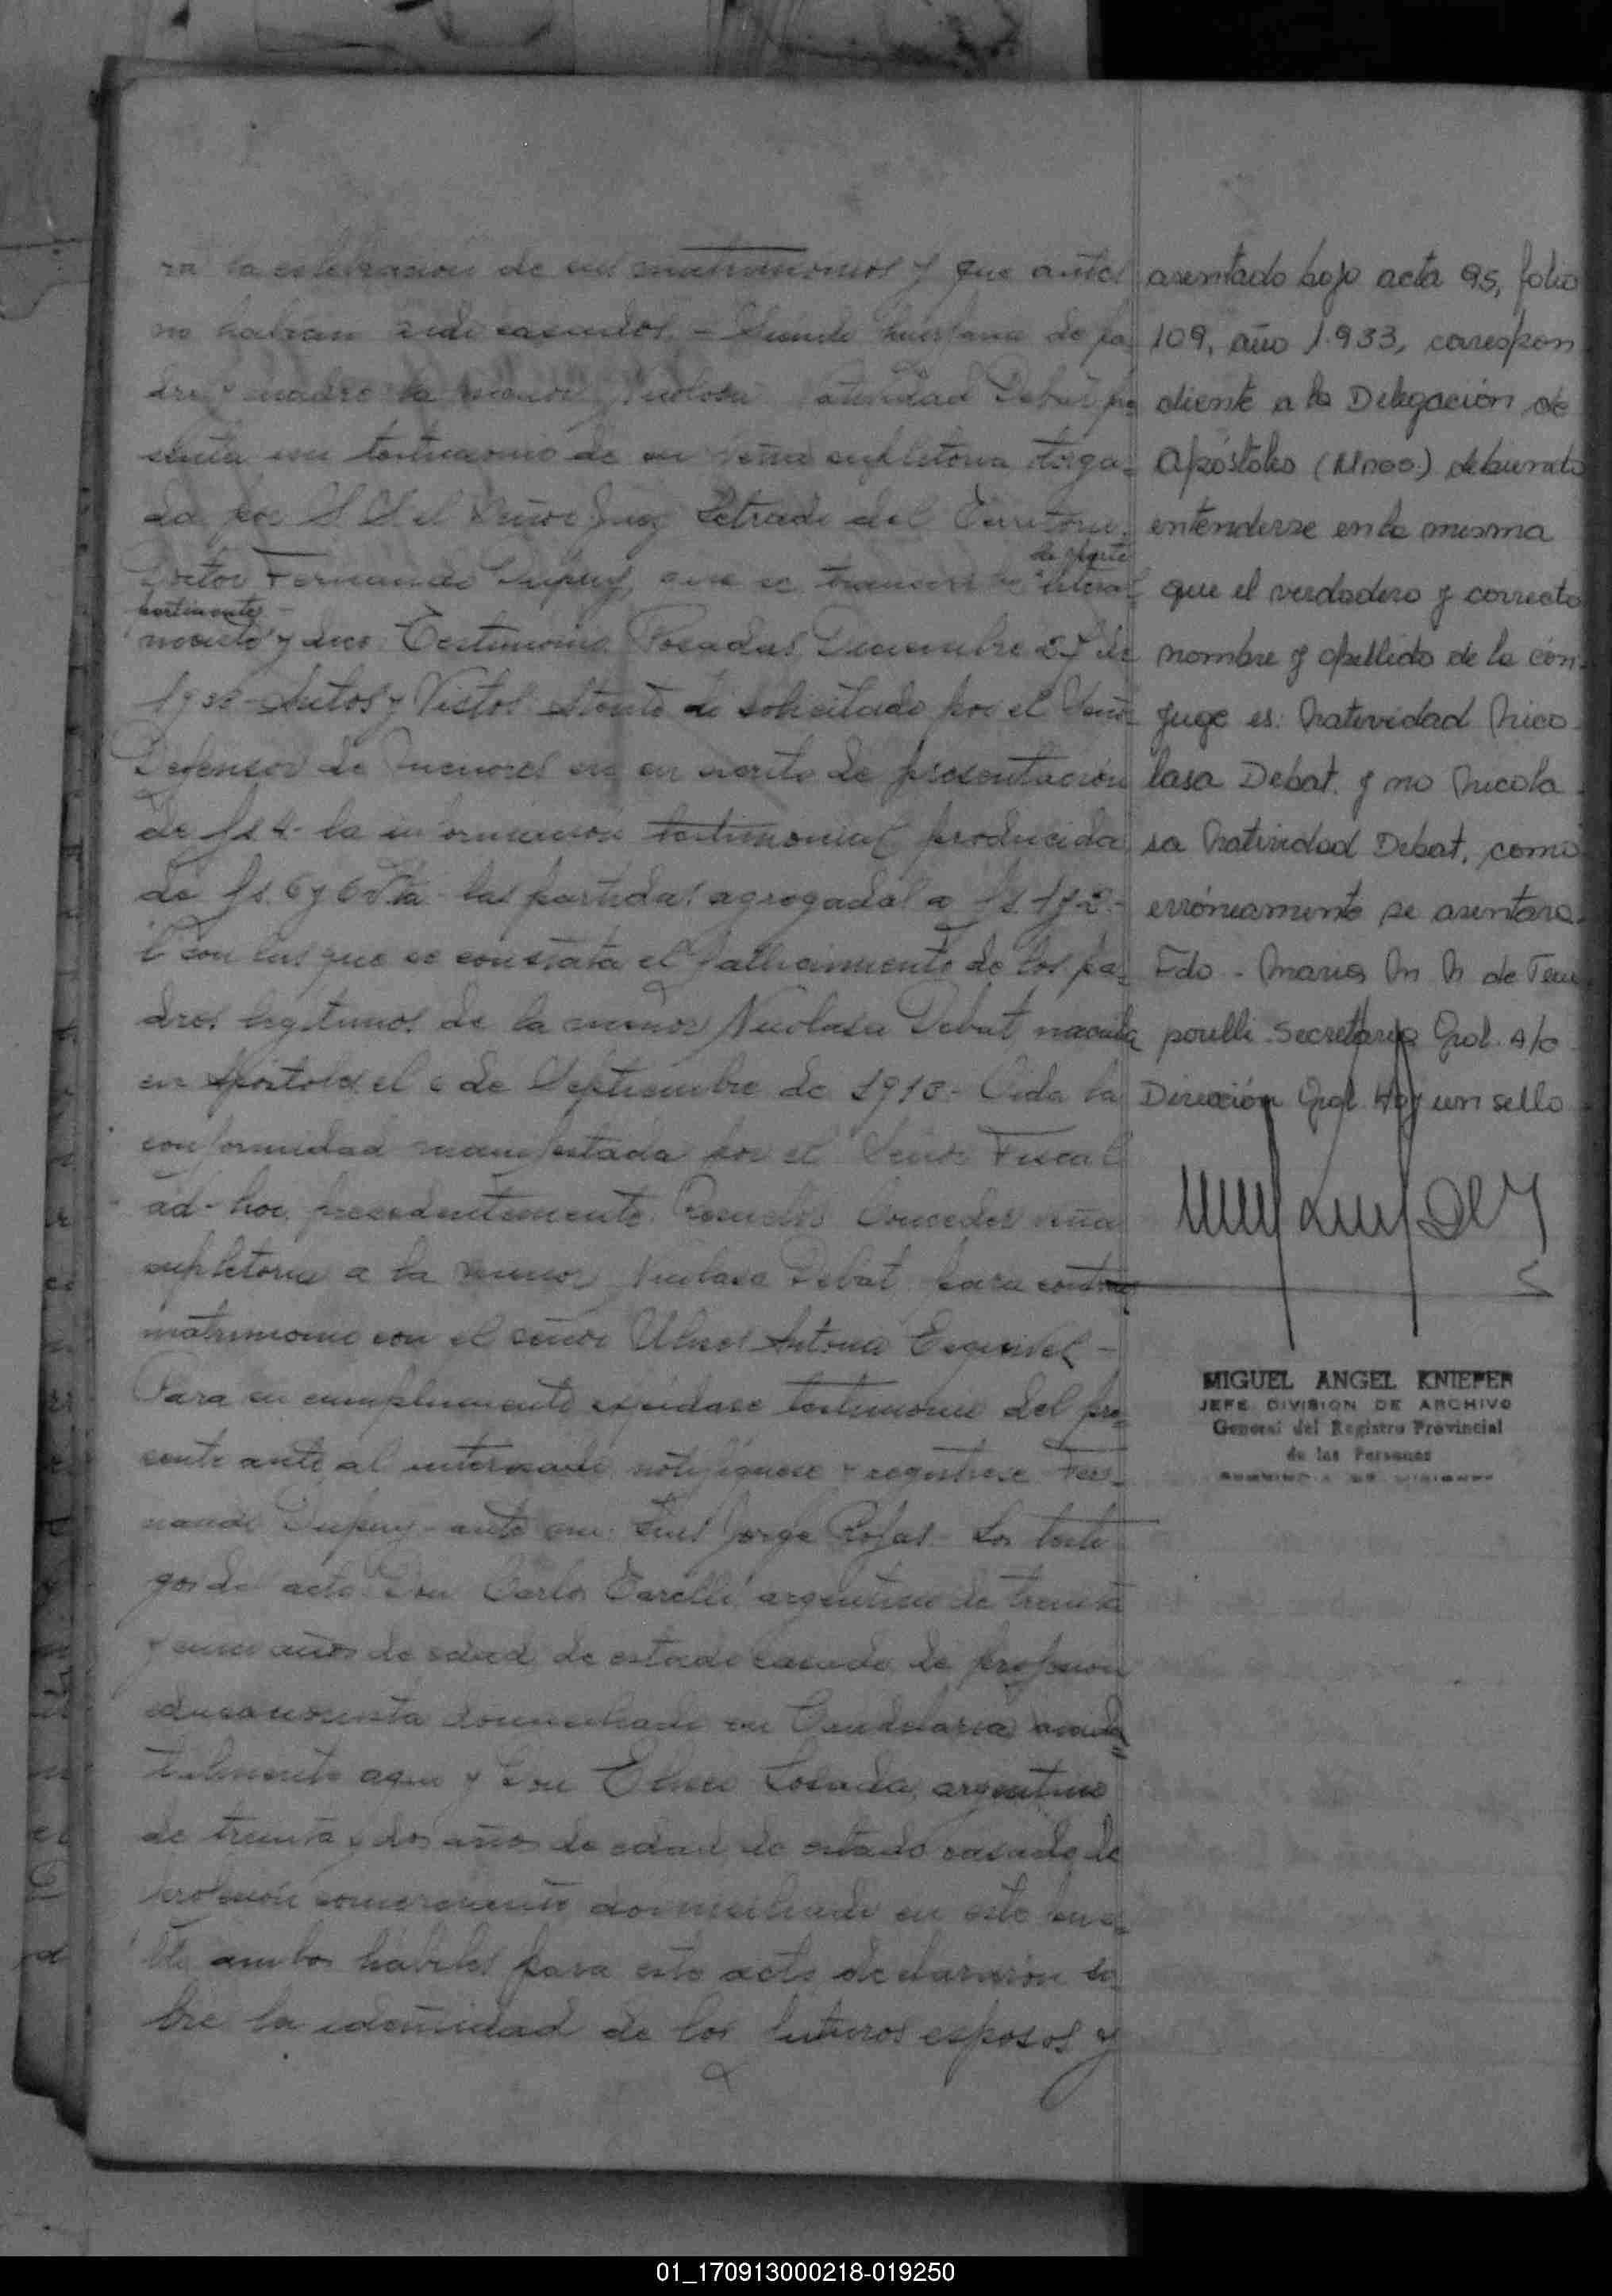 ra la celebracion de sus matrimonios y que antes
no habian sido casados. - Siendo huerfana de pa-
dre y madre la menor Nicolasa Natividad Debat pre-
senta un testimonio de su venia supletoria otorga-
da por S S el Señor Juez Letrado del Territorio,
Doctor Fernando Dupuy, que se transcribe literal-
la parte
pertinente
mente y dice: Testimonio. Posadas, Diciembre 27 de
Autos y Vistos: Atento lo solicitado por el Señor
Defensor de menores en su escrito de presentación
de fs 4 - la informacion testimonial producida
de fs. 6 y 6 vta - las partidas agregadas a fs. 1 y 2 -
con las que se constata el fallecimiento de los pa-
dres legitimos de la menor Nicolasa Debat, nacida
en Apostoles el 6 de Septiembre de 1913 - Oida la
conformidad manifestada por el Señor Fiscal
ad-hoc, precedentemente. Resuelvo: Conceder venia
supletoria a la menor Nicolasa Debat para contraer
matrimonio con el señor Antonio Esquivel -
Para su cumplimiento expidase testimonio del pre-
sente auto al interesado, notifiquese y registrese. Fer-
nando Dupuy - ante mi: Luis Jorge Rojas - Los testi-
gos del acto Don Carlos Tarelli argentino de treinta
y años de edad, de estado casado, de profesion
domiciliado en Candelaria, acciden-
talmente aqui y Don Losada, argentino
de treinta y dos años de edad de estado casado, de
profesion comerciante domiciliado en este pue-
blo ambos habiles para este acto declararon so-
bre la identidad de los futuros esposos y
asentado bajo acta 95, folio
109, año 1.933, correspon
diente a la Delegación de
Apóstoles (Mnes.) debiendo
entenderse en la misma
que el verdadero y correcto
nombre y apellido de la cón-
yuge es: Natividad Nico-
lasa Debat. y no Nicola-
sa Natividad Debat, como
erróneamente se asentara.
Fdo - Maria M N de Tem
porelli. Secretaria Gral. A/C
Dirección Gral. Hay un sello
MIGUEL ANGEL KNIEPER
JEFE DIVISION DE ARCHIVO
General del Registro Provincial
de las Personas
01_170913000218-019250